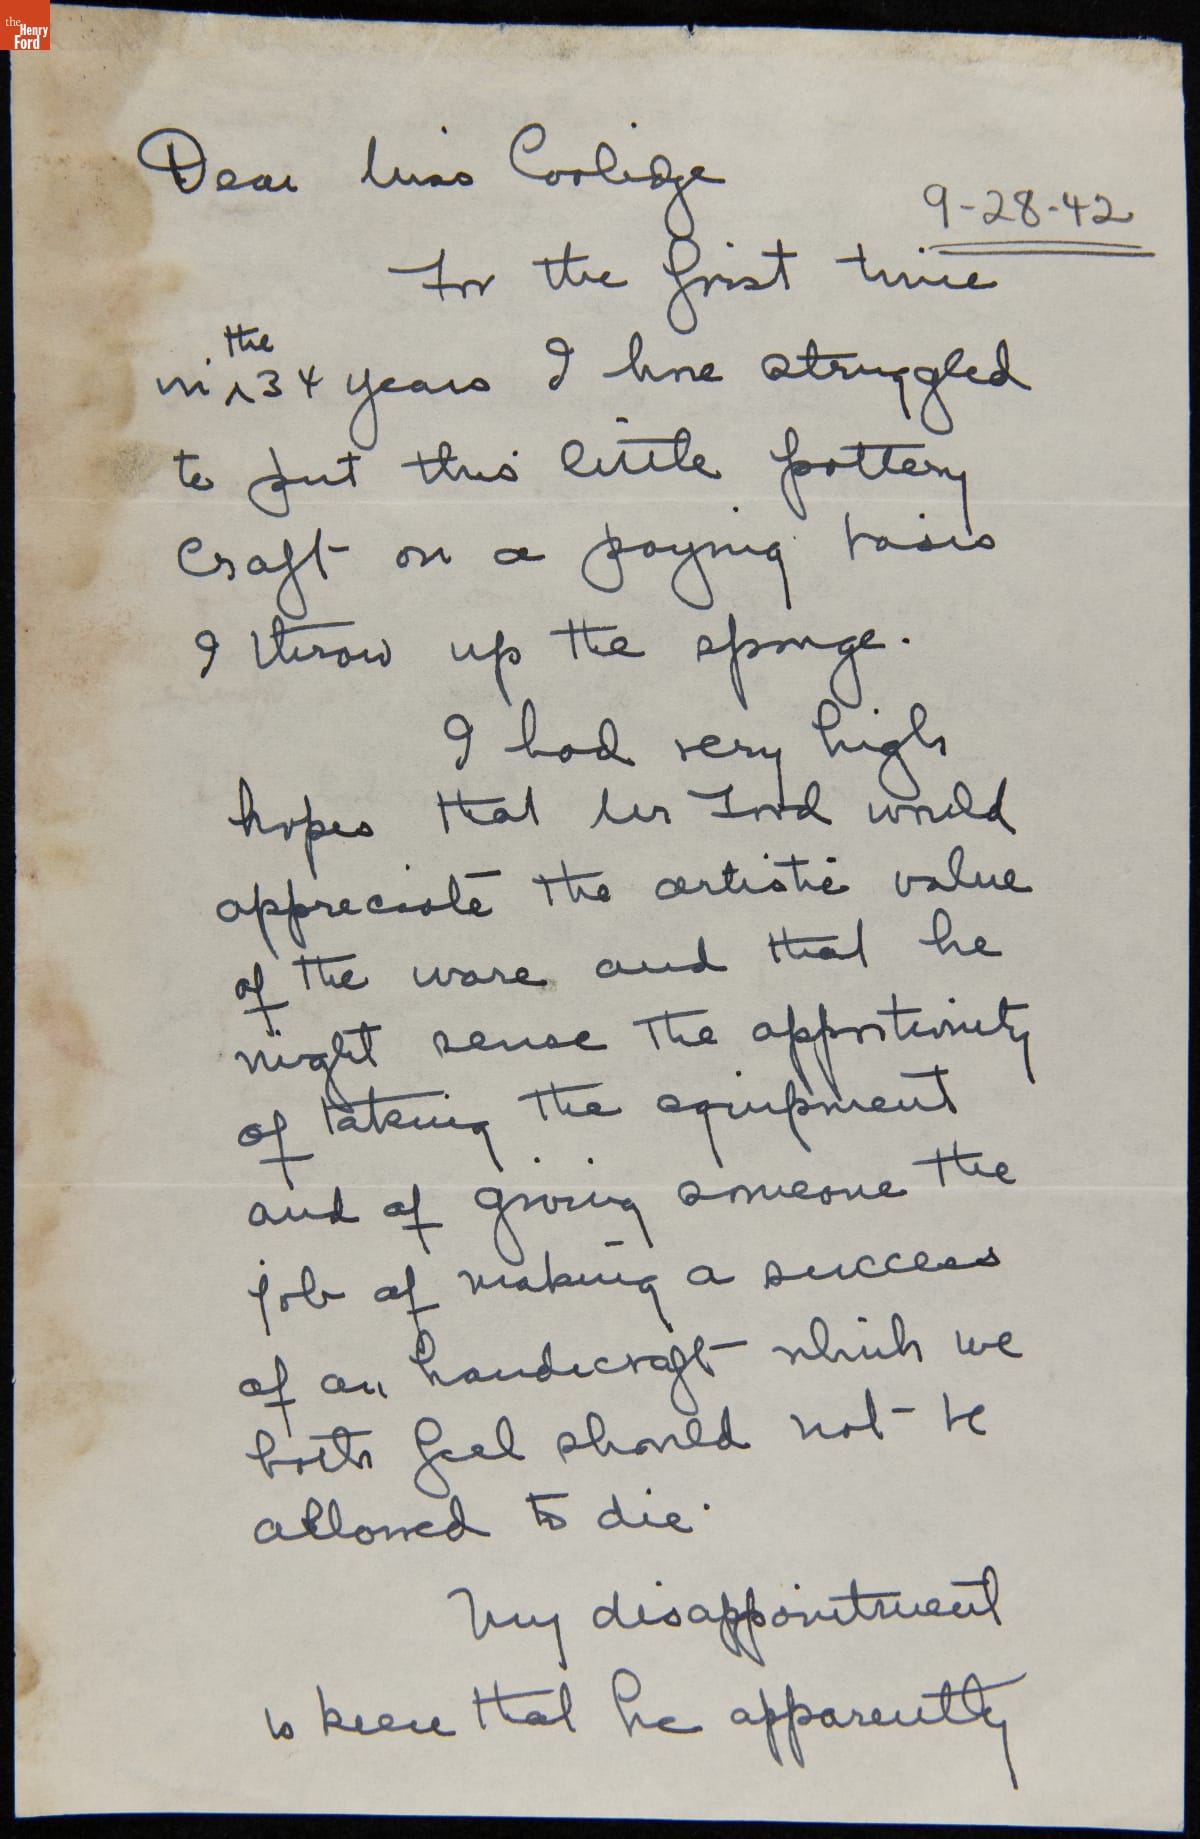 the
Henry
Ford
Dear Miss Coolidge
9-28-42
For the first time
in ^the 34 years I have struggled
to put this little pottery
craft on a paying basis
I throw up the sponge.
I had very high
hopes that Mr Ford would
appreciate the artistic value
of the ware and that he
might sense the opportunity
of taking the equipment
and of giving someone the
job of making a success
of an handicraft which we
both feel should not be
allowed to die.
My disappointment
is keen that he apparently